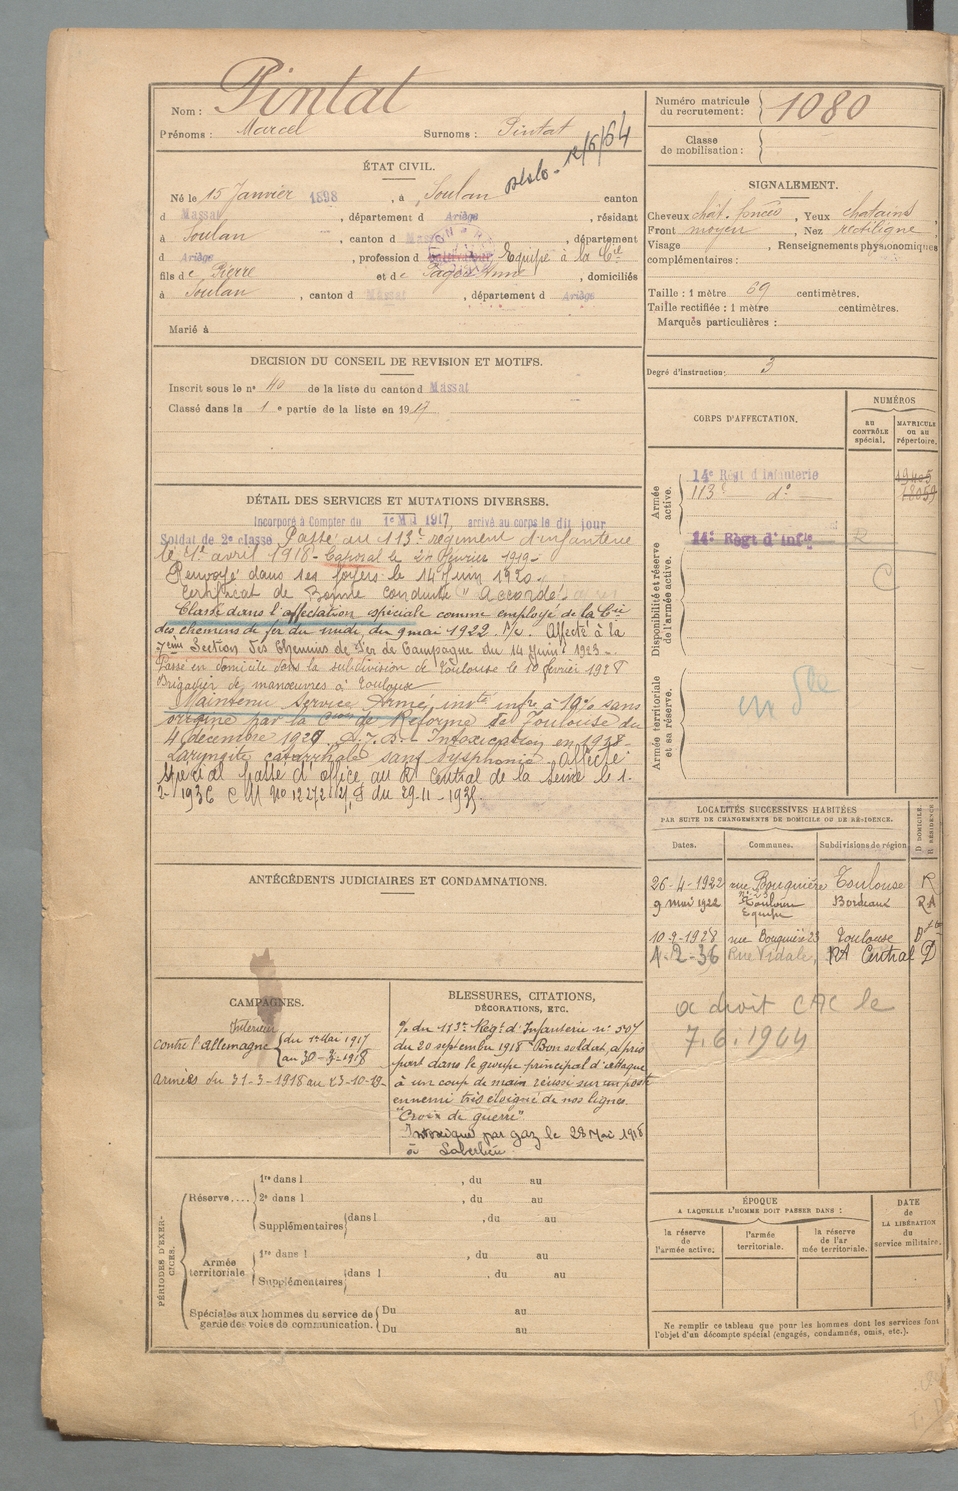 Nom : Pintat
Prénoms : Marcel Surnoms : Pintat
12/6/64
ÉTAT CIVIL.
Né le 15 Janvier 1898, à Soulan canton
d Massat, département d Ariège, résidant
à Soulan, canton d Massat, département
d Ariège, profession d Cultivateur Equipe à la Cie
fils de Pierre et de Pagès Anne, domiciliés
à Soulan, canton d Massat, département d Ariège
Marié à
DECISION DU CONSEIL DE REVISION ET MOTIFS.
Inscrit sous le no 40 de la liste du canton d Massat
Classé dans la 1e partie de la liste en 1917
DÉTAIL DES SERVICES ET MUTATIONS DIVERSES.
Incorporé à Compter du 1er Mai 1917, arrivé au corps le dit jour
Soldat de 2e classe Passé au 113e régiment d'infanterie
le 1er avril 1918 - Caporal le 21 février 1919 -
Renvoyé dans ses foyers le 14 Juin 1920.
Certificat de Bonne conduite "Accordé"
Classé dans l'affectation spéciale comme employé de la Cie
des chemins de fer du midi, du 9 mai 1922. Affecté à la
7eme Section des Chemins de Fer de Campagne du 14 Juin 1923 -
Passé en domicile dans la subdivision de Toulouse le 10 février 1928
Brigadier de manœuvres à Toulouse
Maintenu Service Armé, invte infre à 10% sans
origine par la Cion de Réforme de Toulouse du
4 décembre 1929 Intoxication en 1918 -
Laryngite catarrhale sans dysphonie Affecté
spécial Passé d'office au Rt Central de la Seine le 1-
2-1936 C M No 12272 du 29-11-1935
ANTÉCÉDENTS JUDICIAIRES ET CONDAMNATIONS.
CAMPAGNES.
Intérieur
contre l'allemagne du 1er Mai 1917
au 30-3-1918
Armées du 31-3-1918 au 23-10-19-
BLESSURES, CITATIONS,
DÉCORATIONS, ETC.
% du 113e Regt d'Infanterie no 507
du 20 septembre 1918 "Bon soldat, a pris
part dans le groupe principal d'attaque
à un coup de main réussi sur un poste
ennemi très éloigné de nos lignes.
"Croix de guerre"
Intoxiqué par gaz le 28 Mai 1918
à
PÉRIODES D'EXERCICES.
Réserve.... 1re dans l , du au
2e dans l , du au
Supplémentaires dans l , du au
Armée territoriale 1re dans l , du au
Supplémentaires dans l , du au
Spéciales aux hommes du service de
garde des voies de communication. Du au
Du au
Numéro matricule
du recrutement : 1080
Classe
de mobilisation :
SIGNALEMENT.
Cheveux chât. foncés, Yeux chatains,
Front moyen, Nez rectiligne,
Visage , Renseignements physionomiques
complémentaires :
Taille : 1 mètre 69 centimètres.
Taille rectifiée : 1 mètre centimètres.
Marques particulières :
Degré d'instruction : 3
CORPS D'AFFECTATION.
NUMÉROS
AU CONTRÔLE spécial.
MATRICULE ou au répertoire.
Armée active.
14e Régt d'Infanterie
113e do
Disponibilité et réserve de l'armée active.
14e Régt d'Infie R
C
Armée territoriale et sa réserve.
LOCALITÉS SUCCESSIVES HABITÉES
PAR SUITE DE CHANGEMENTS DE DOMICILE OU DE RÉSIDENCE.
D DOMICILE.
R RÉSIDENCE
Dates. Communes. Subdivisions de région.
26-4-1922 rue Bouquière Toulouse R
9 mai 1922 Toulouse Equipe Bordeaux RA
10-2-1928 rue Bouquière 23 Toulouse
1-2-36 Rue Vidale, RA Central D
a droit CAC le
7.6.1944
ÉPOQUE
A LAQUELLE L'HOMME DOIT PASSER DANS :
la réserve de l'armée active.
l'armée territoriale.
la réserve de l'ar mée territoriale.
DATE
de
LA LIBÉRATION
du
service militaire.
Ne remplir ce tableau que pour les hommes dont les services font
l'objet d'un décompte spécial (engagés, condamnés, omis, etc.).